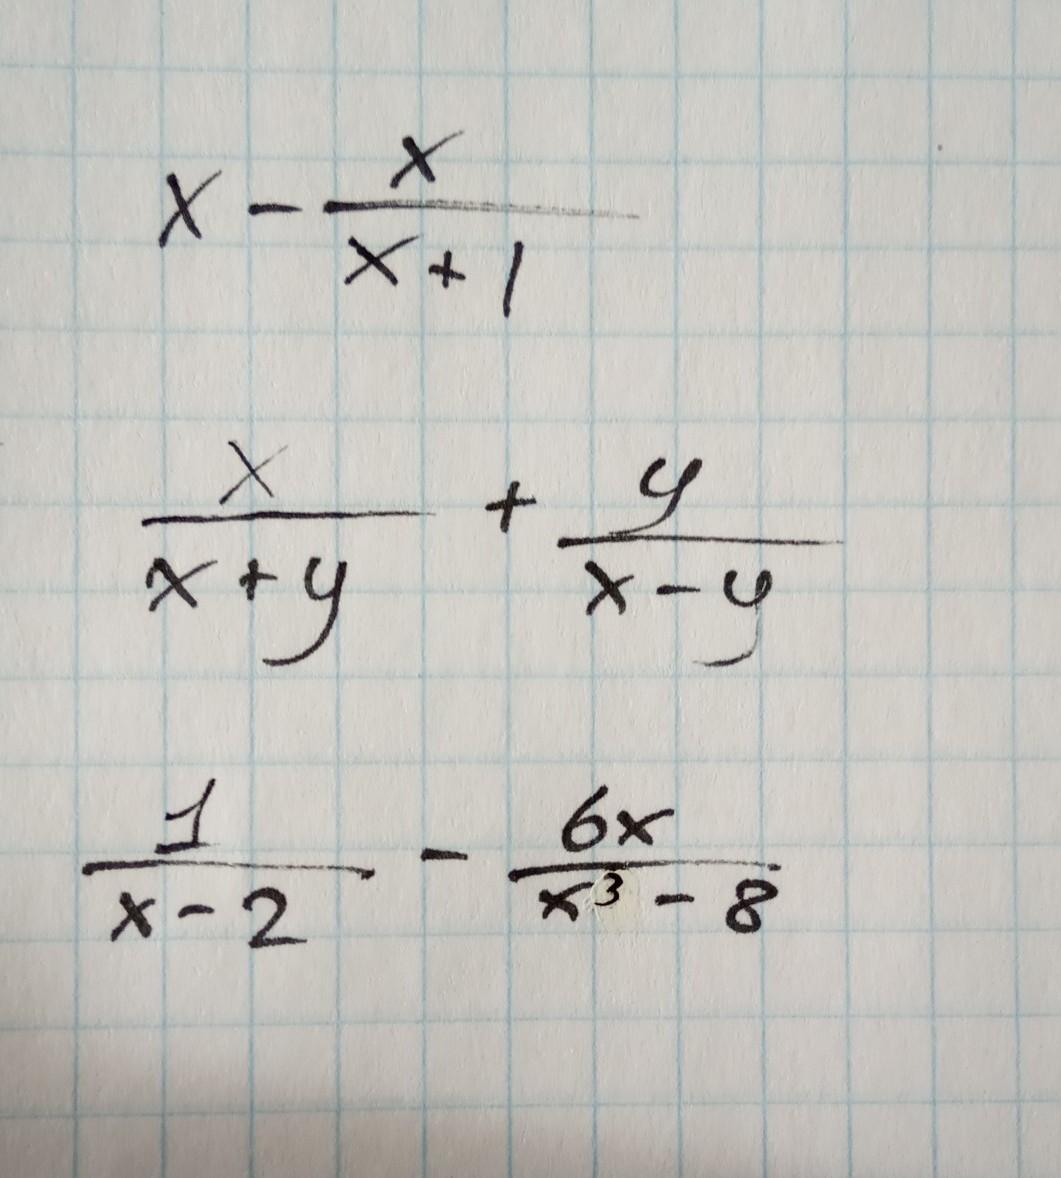 x - x/(x + 1)
x/(x + y) + y/(x - y)
1/(x - 2) - 6x/(x³ - 8)